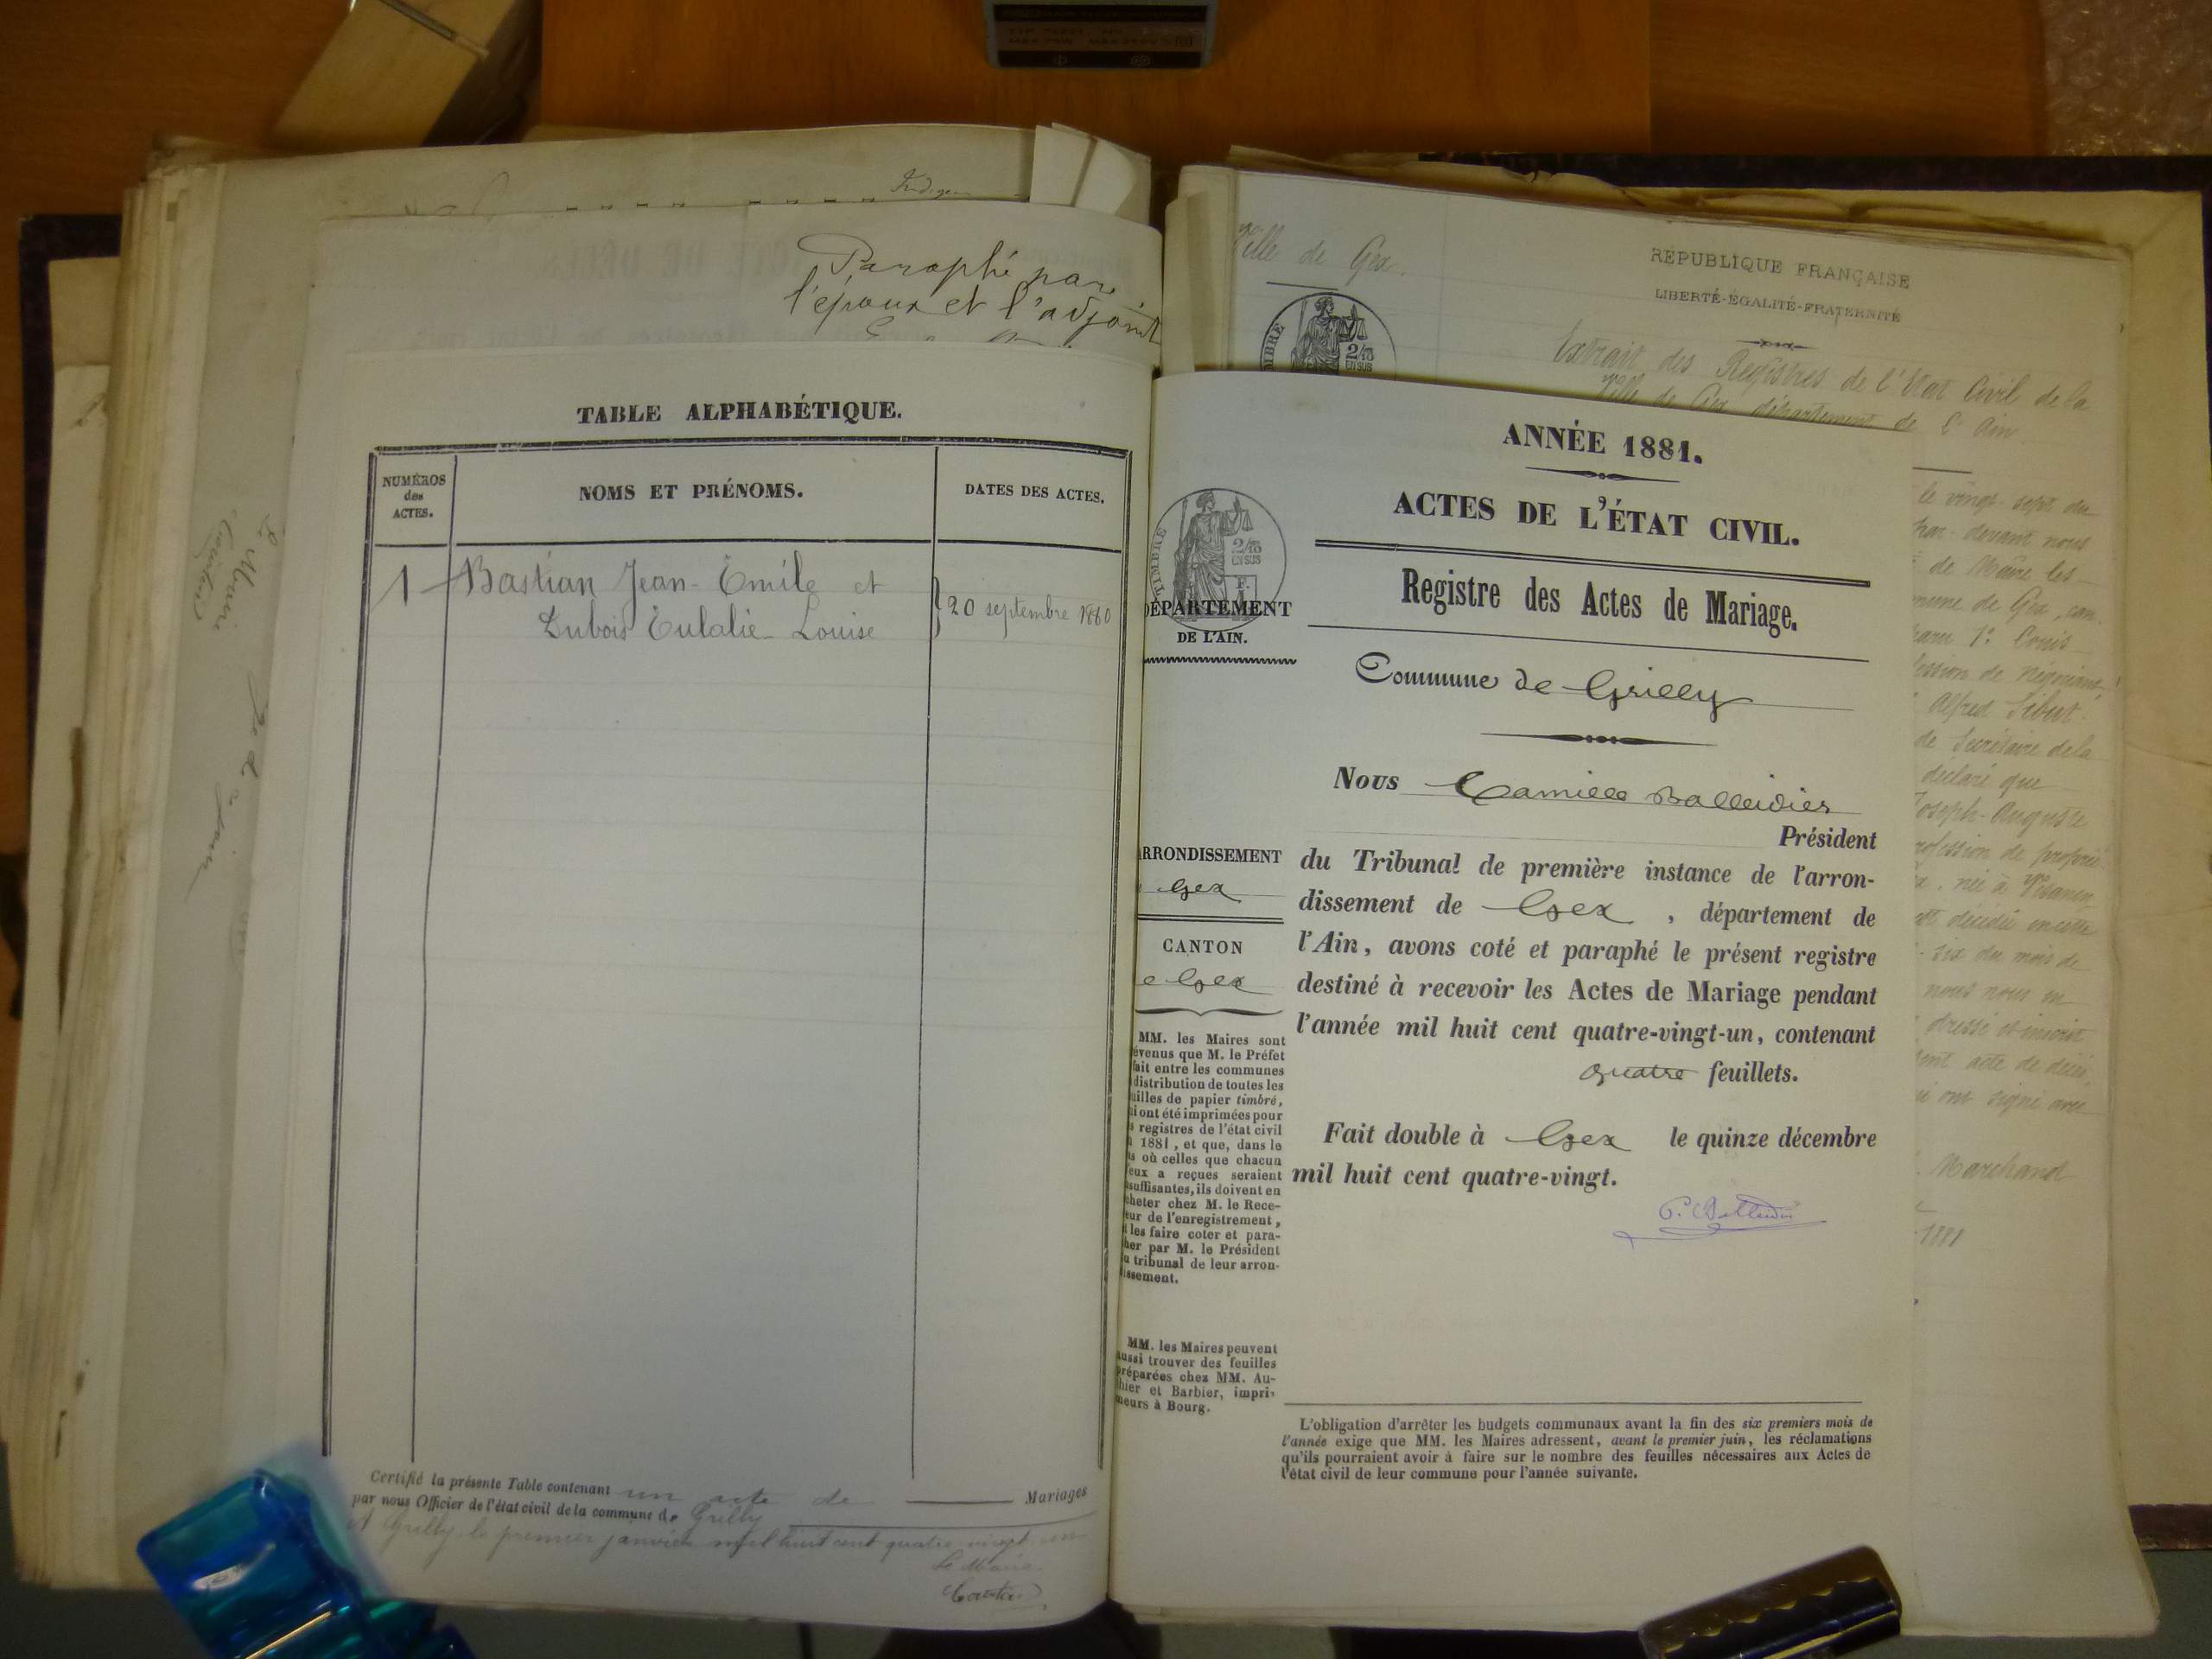 Paraphé par
l'époux et l'adjoint
TABLE ALPHABÉTIQUE.
NUMÉROS
des
ACTES.
NOMS ET PRÉNOMS.
DATES DES ACTES.
1 Bastian Jean-Emile et
Dubois Eulalie Louise
20 septembre 1880
Certifié la présente Table contenant un acte de Mariages
par nous Officier de l'état civil de la commune de Grilly
A Grilly, le premier janvier mil huit cent quatre vingt un
Le Maire
Ville de Gex.
RÉPUBLIQUE FRANÇAISE
LIBERTÉ-ÉGALITÉ-FRATERNITÉ
Extrait des Registres de l'Etat Civil de la
Ville de Gex département de l'Ain
ANNÉE 1881.
ACTES DE L'ÉTAT CIVIL.
Registre des Actes de Mariage.
Commune de Grilly
TIMBRE
2/10
EN SUS
DÉPARTEMENT
DE L'AIN.
Nous Camille Balleidier
Président
du Tribunal de première instance de l'arron-
dissement de Gex, département de
l'Ain, avons coté et paraphé le présent registre
destiné à recevoir les Actes de Mariage pendant
l'année mil huit cent quatre-vingt-un, contenant
quatre feuillets.
Fait double à Gex le quinze décembre
mil huit cent quatre-vingt.
RRONDISSEMENT
Gex
CANTON
e Gex
MM. les Maires sont
évenus que M. le Préfet
fait entre les communes
distribution de toutes les
uilles de papier timbré,
i ont été imprimées pour
s registres de l'état civil
1881, et que, dans le
s où celles que chacun
eux a reçues seraient
suffisantes, ils doivent en
cheter chez M. le Rece-
eur de l'enregistrement,
les faire coter et para-
her par M. le Président
u tribunal de leur arron-
issement.
MM. les Maires peuvent
aussi trouver des feuilles
préparées chez MM. Au-
thier et Barbier, impri-
meurs à Bourg.
L'obligation d'arrêter les budgets communaux avant la fin des six premiers mois de
l'année exige que MM. les Maires adressent, avant le premier juin, les réclamations
qu'ils pourraient avoir à faire sur le nombre des feuilles nécessaires aux Actes de
l'état civil de leur commune pour l'année suivante.
le vingt-sept du
devant nous
de Maire les
mune de Gex, can-
1° Louis
fession de négociant,
Alfred Sibut
de Secrétaire de la
déclaré que
Joseph-Auguste
rofession de proprié-
née à
décédée en cette
six du mois de
nous nous
dressé et inscrit
sent acte de décès,
ui ont signé avec
Marchand
1881